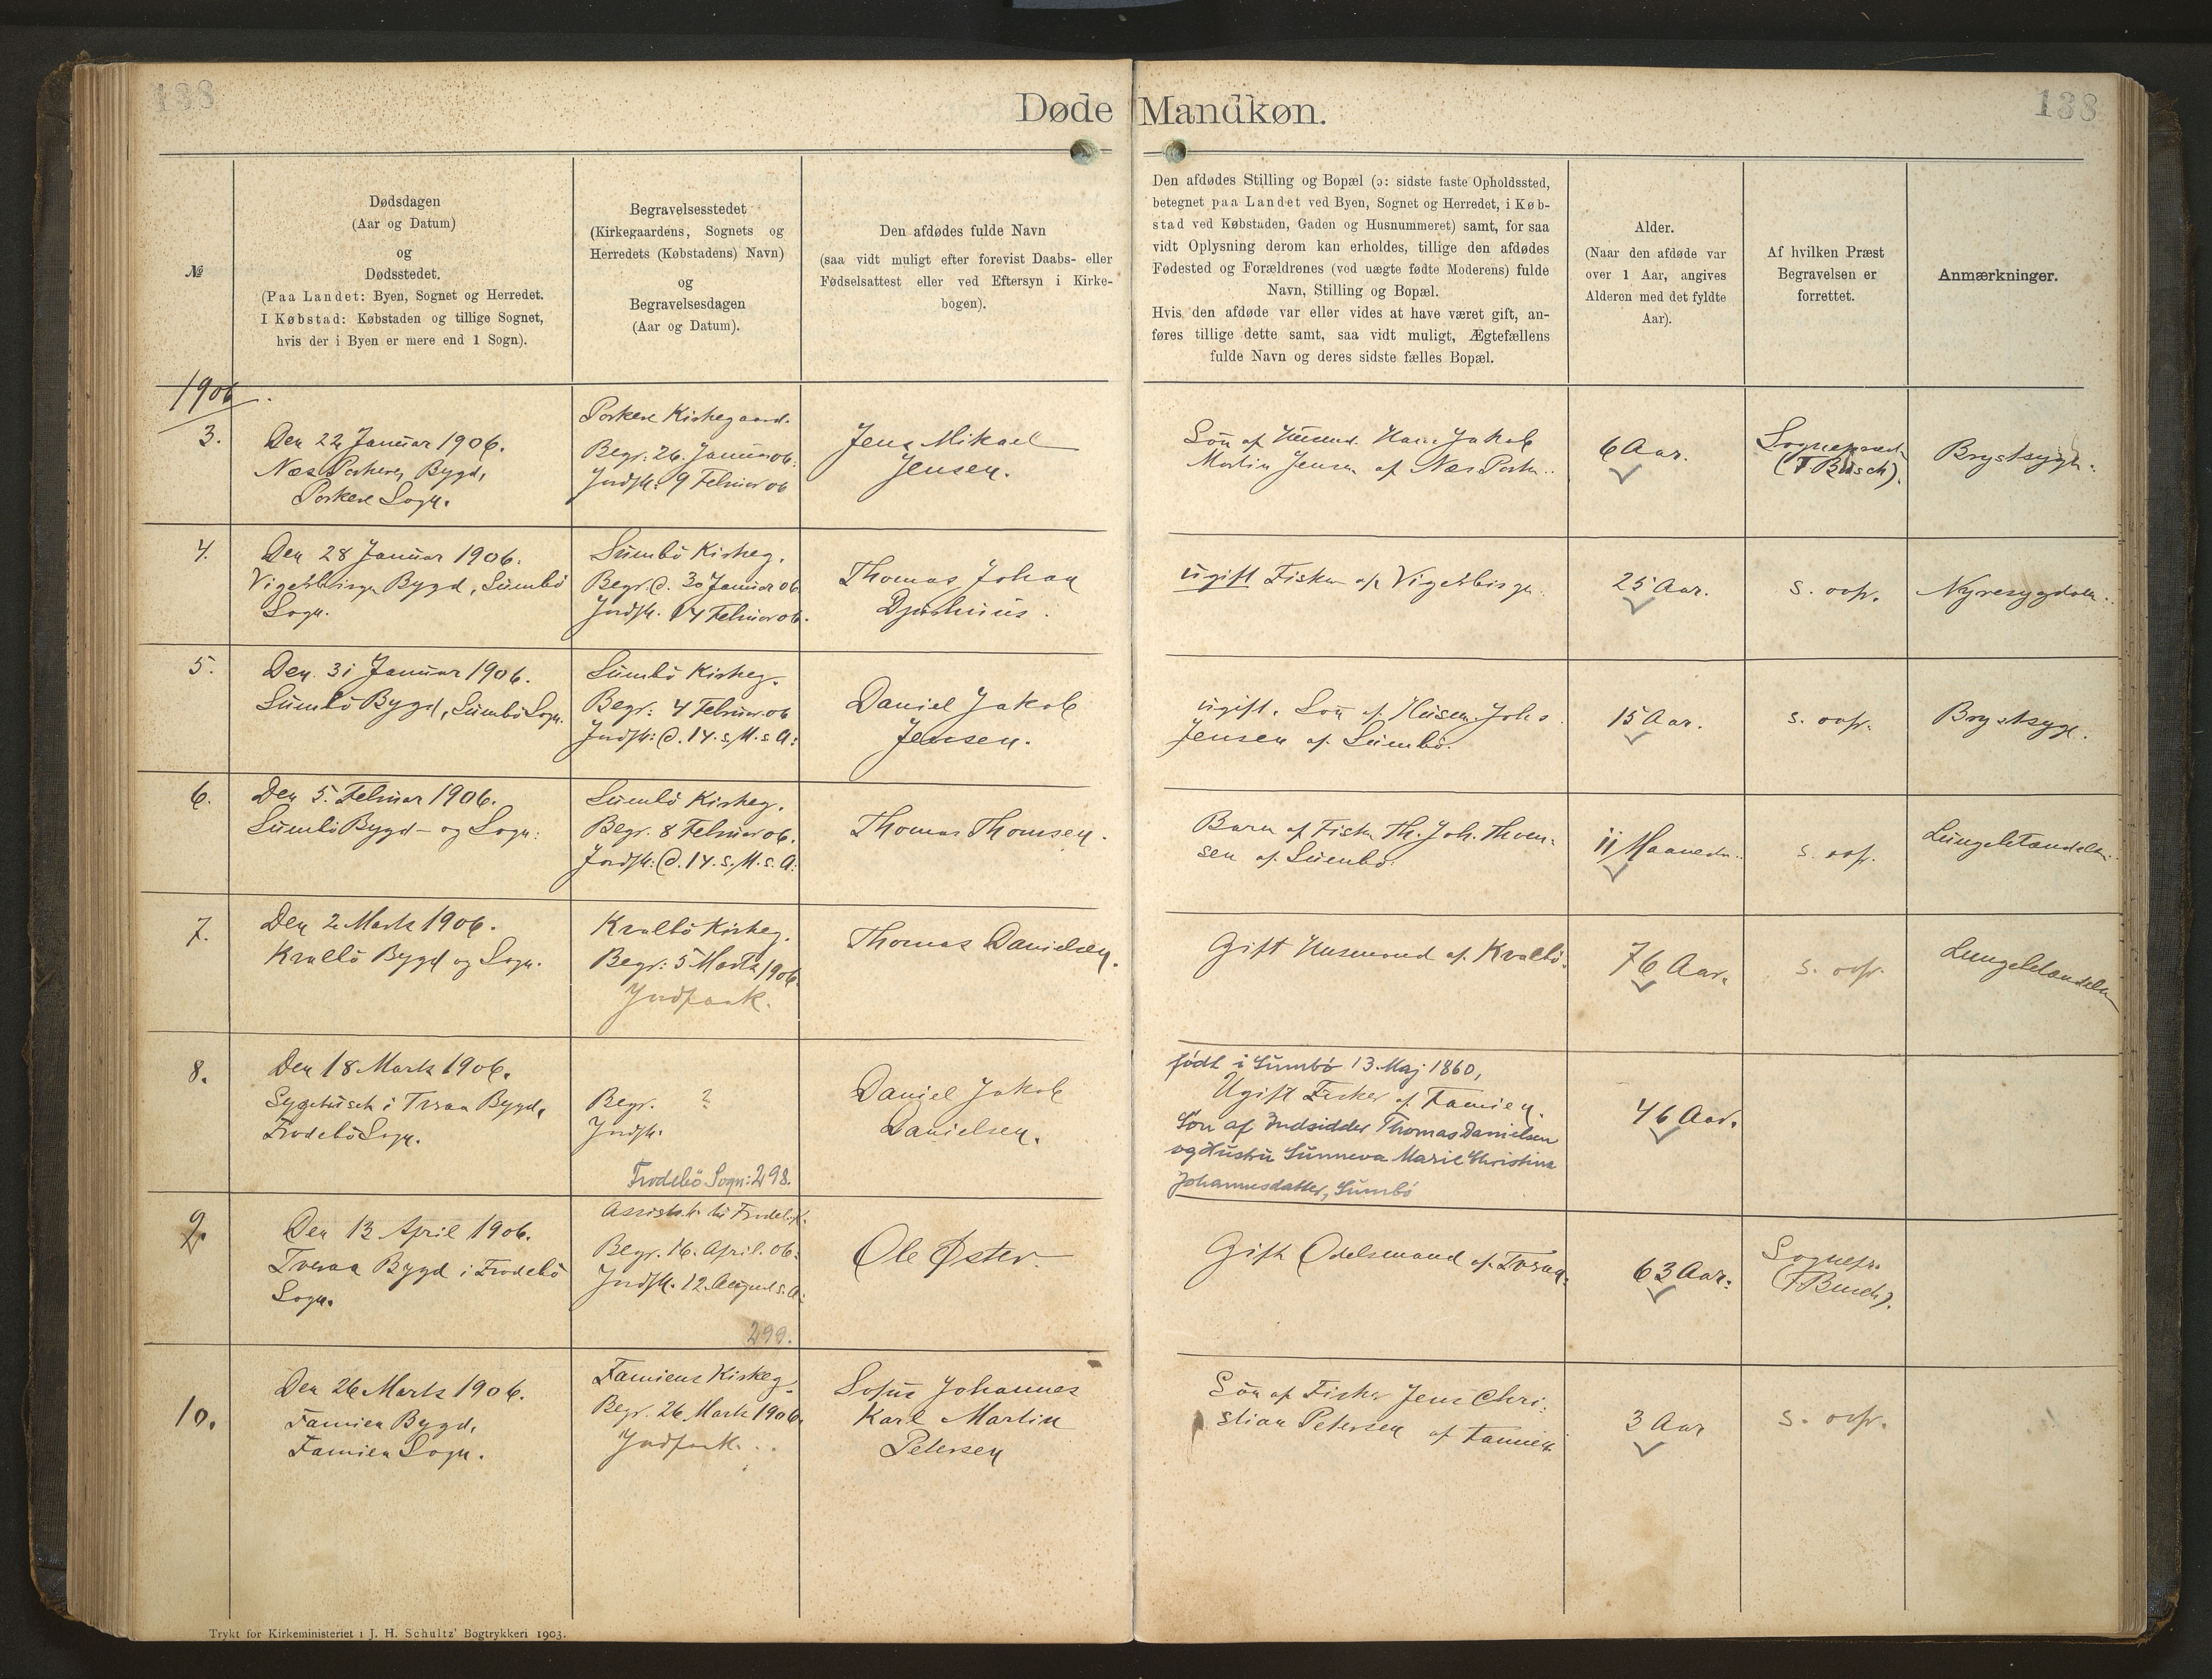 138
138
Døde Mandkøn.
№
Dødsdagen
(Aar og Datum)
og
Dødsstedet.
(Paa Landet: Byen, Sognet og Herredet.
I Købstad: Købstaden og tillige Sognet,
hvis der i Byen er mere end 1 Sogn).
Begravelsesstedet
(Kirkegaardens, Sognets og
Herredets (Købstadens) Navn)
og
Begravelsesdagen
(Aar og Datum).
Den afdødes fulde Navn
(saa vidt muligt efter forevist Daabs- eller
Fødselsattest eller ved Eftersyn i Kirke-
bogen).
Den afdødes Stilling og Bopæl (ɔ: sidste faste Opholdssted,
betegnet paa Landet ved Byen, Sognet og Herredet, i Køb-
stad ved Købstaden, Gaden og Husnummeret) samt, for saa
vidt Oplysning derom kan erholdes, tillige den afdødes
Fødested og Forældrenes (ved uægte fødte Moderens) fulde
Navn, Stilling og Bopæl.
Hvis den afdøde var eller vides at have været gift, an-
føres tillige dette samt, saa vidt muligt, Ægtefællens
fulde Navn og deres sidste fælles Bopæl.
Alder.
(Naar den afdøde var
over 1 Aar, angives
Alderen med det fyldte
Aar).
Af hvilken Præst
Begravelsen er
forrettet.
Anmærkninger.
1906
3.
Den 22 Januar 1906.
Næs Porkere, Bygd,
Porkere Sogn.
Porkere Kirkegaard.
Begr. 26. Januar 06.
Jordfk: 9 Februar 06
Jens Mikael
Jensen.
Søn af Husmd. Hans Jakob
Martin Jensen af Næs Pork..
6 Aar.
Sognepræst
(F Busch).
Brystsyge.
4.
Den 28 Januar 1906.
Bygd, Sumbø
Sogn.
Sumbø Kirkeg.
Begr. d. 30 Januar 06
Jordfk. 14 Februar 06.
Thomas Johan
Djurhuus.
ugift Fisker af
25 Aar.
s. ovf.
Nyresygdom.
5.
Den 31 Januar 1906.
Sumbø Bygd, Sumbø Sogn.
Sumbø Kirkeg.
Begr: 4 Februar 06
Jordfk: d. 14. s. M. s A:
Daniel Jakob
Jensen.
ugift. Søn af Husm. Johs.
Jensen af Sumbø.
15 Aar.
s. ovf.
Brystsyge.
6.
Den 5. Februar 1906.
Sumbø Bygd - og Sogn:
Sumbø Kirkeg.
Begr. 8 Februar 06.
Jordfk: d. 14. s. M. s. A:
Thomas Thomsen.
Barn af Fisker Th. Joh. Thom-
sen af Sumbø.
11 Maaneder.
s. ovf.
Lungebetændelse.
7.
Den 2 Marts 1906.
Kvalbø Bygd og Sogn.
Kvalbø Kirkeg.
Begr: 5 Marts 1906
Jordfk.
Thomas Danielsen.
Gift Husmand af Kvalbø.
76 Aar.
s. ovf.
Lungebetændelse
8.
Den 18 Marts 1906.
Sygehuset i Tveraa Bygd,
Frodebø Sogn.
Begr. ?
Jordfk.
Frodebø Sogn: 298.
Daniel Jakob
Danielsen.
født i Sumbø 13. Maj 1860,
Ugift Fisker af Famien.
Søn af Indsidder Thomas Danielsen
og Hustru Sunneva Marie Christina
Johannesdatter, Sumbø
46 Aar.
9.
Den 13 April 1906.
Tveraa Bygd i Frodebø
Sogn.
Begr. 16. April. 06.
Jordfk. 12. August s. A:
299.
Ole Øster.
Gift Odelsmand af Tveraa.
63 Aar.
Sognepr.
(F Busch).
10.
Den 26 Marts 1906.
Famien Bygd,
Famien Sogn.
Famiens Kirkeg.
Begr. 26 Marts 1906.
Jordfk.
Sofus Johannes
Karl Martin
Petersen
Søn af Fisker Jens Chri-
stian Petersen af Famien
3 Aar
s. ovf.
Trykt for Kirkeministeriet i J. H. Schultz' Bogtrykkeri 1903.